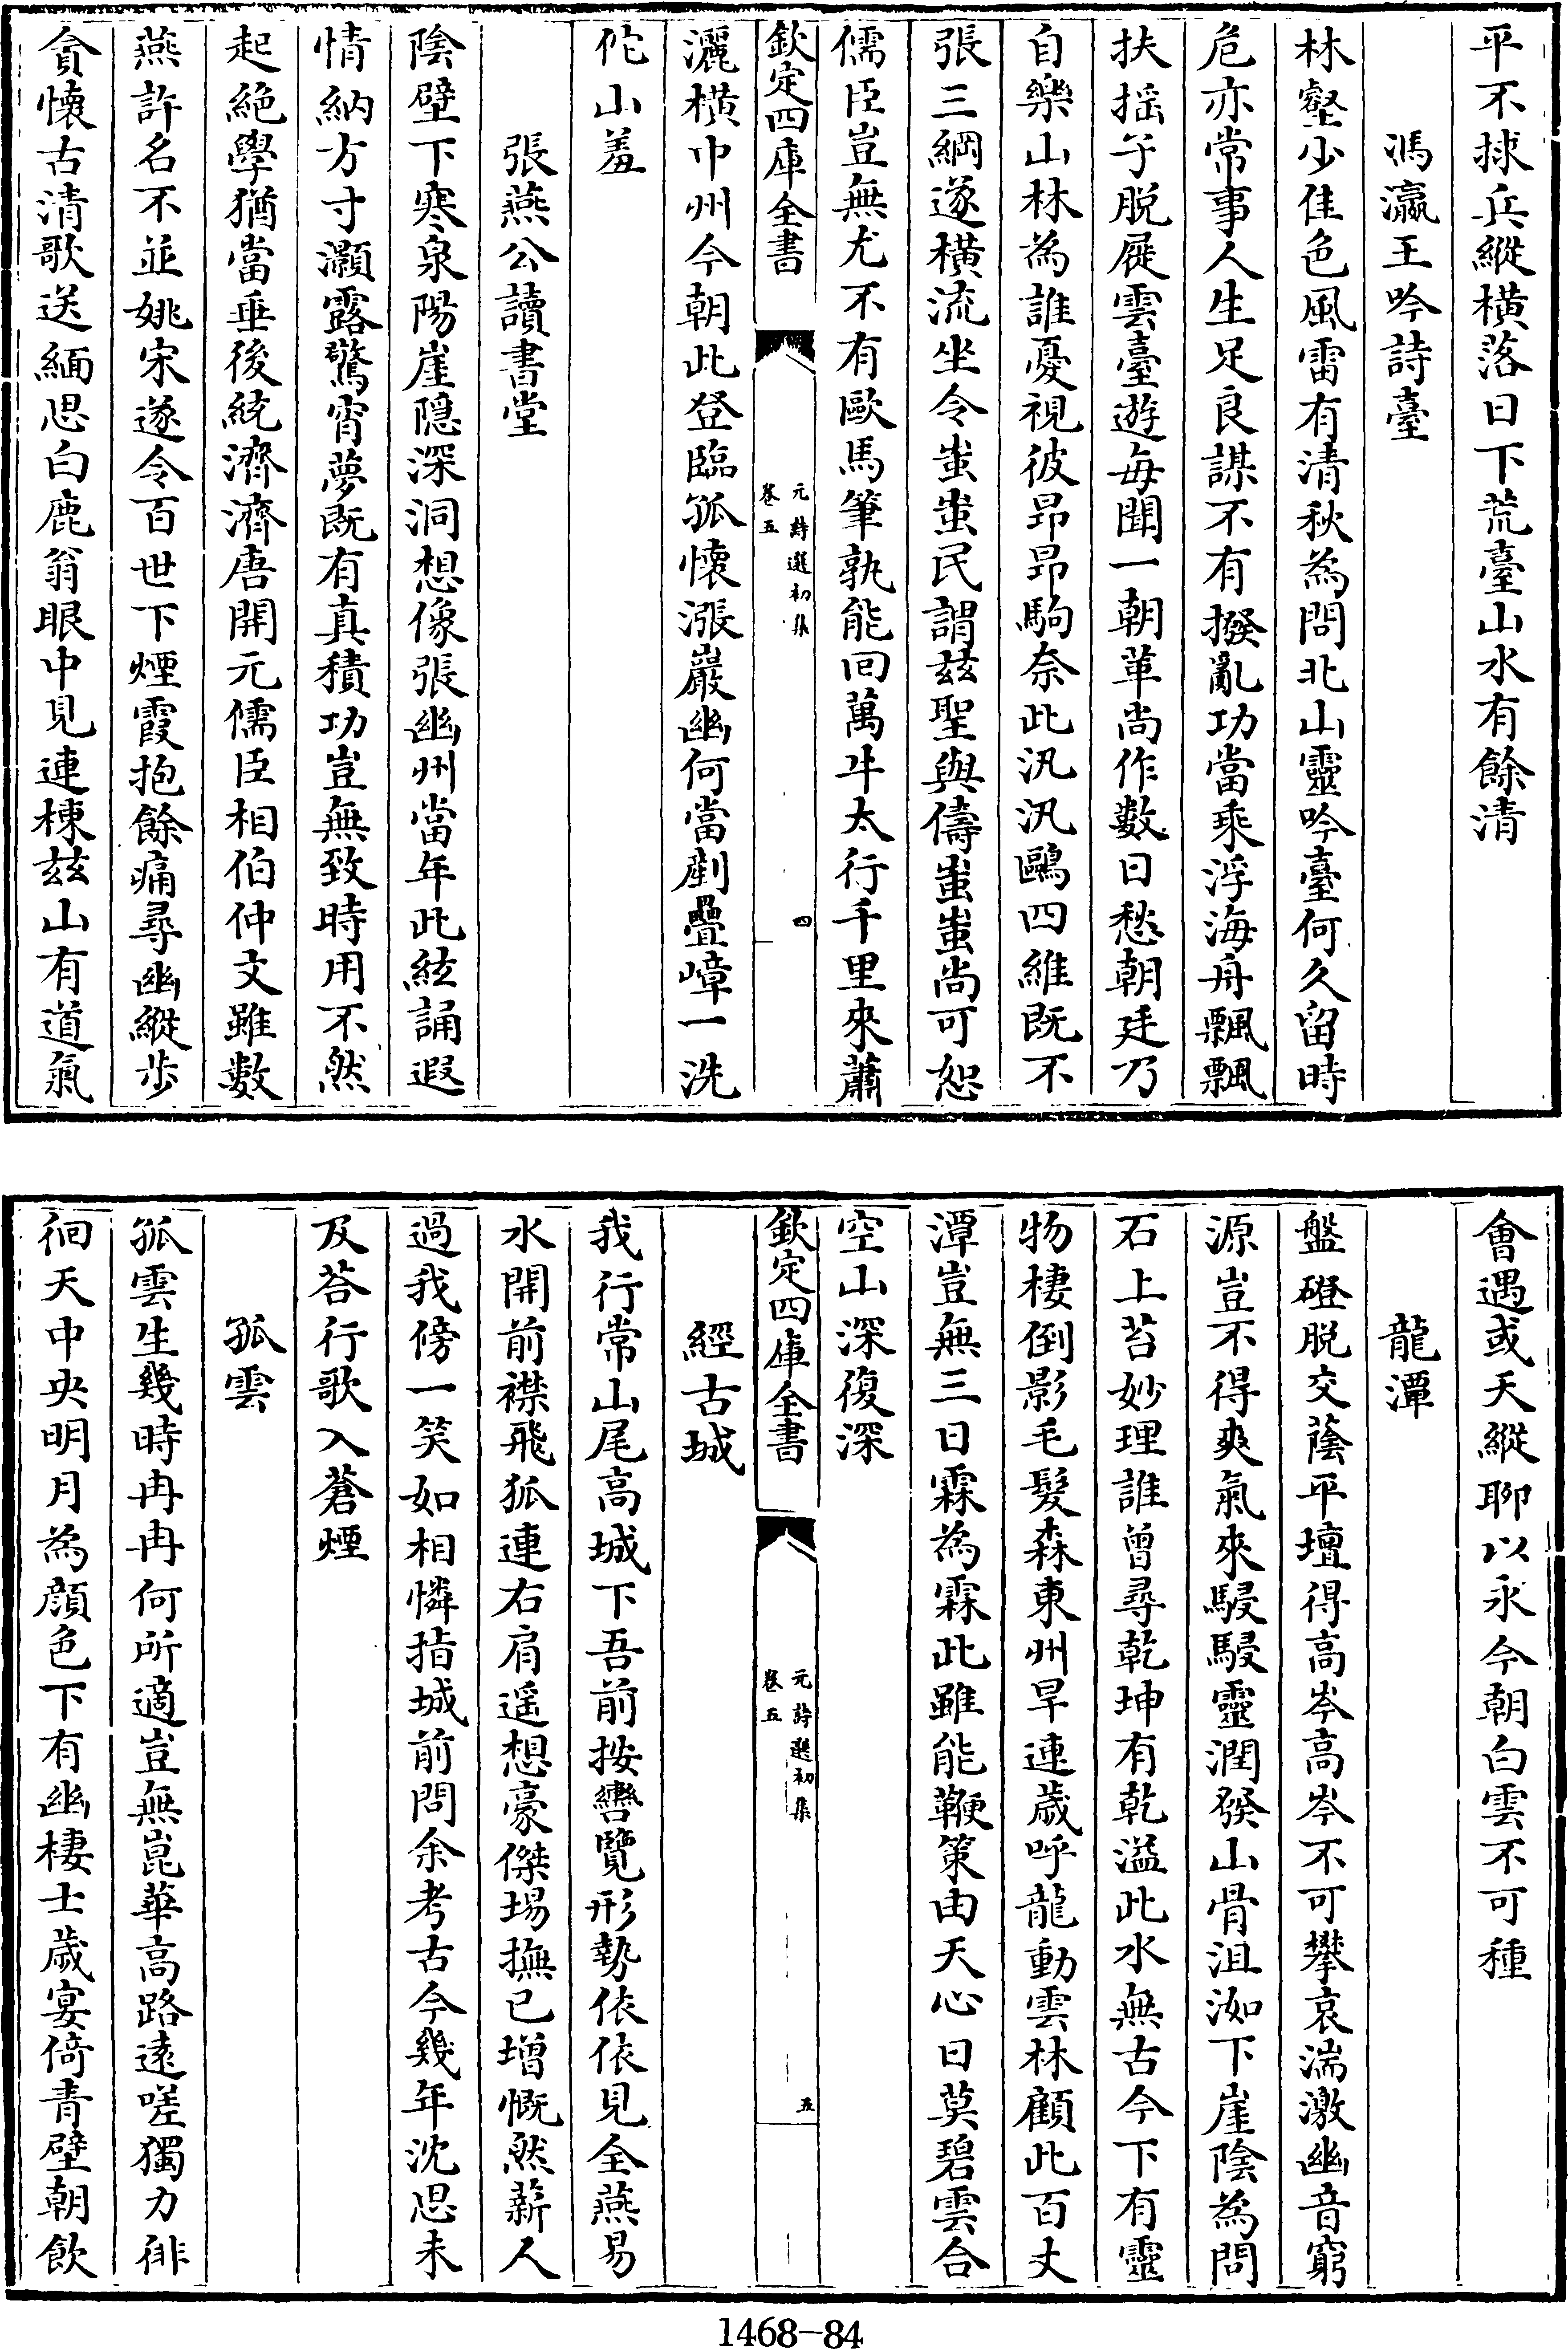 平不捄兵縱横落日下荒臺山水有餘清
馮瀛王吟詩臺
林壑少佳色風雷有清秋為問北山靈吟臺何久留時
危亦常事人生足良謀不有撥亂功當乘浮海舟飄飄
扶揺子脱屣雲臺遊每聞一朝革尚作數日愁朝廷乃
自樂山林為誰憂視彼昂昂駒奈此汎汎鷗四維既不
張三綱遂橫流坐令蚩蚩民謂兹聖與儔蚩蚩尚可恕
儒臣豈無尤不有歐馬筆孰能回萬牛太行千里來蕭
欽定四庫全書
元詩選初集
卷五
四
灑横中州今朝此登臨孤懷漲巖幽何當剷疊嶂一洗
佗山羞
張燕公讀書堂
陰壁下寒泉陽崖隠深洞想像張幽州當年此絃誦遐
情納方寸灝露驚宵夢既有真積功豈無致時用不然
起絶學猶當垂後統濟濟唐開元儒臣相伯仲文雖數
燕許名不並姚宋遂令百世下煙霞抱餘痛尋幽縱步
貪懷古清歌送緬思白鹿翁眼中見連棟兹山有道氣
會遇或天縱聊以永今朝白雲不可種
龍潭
盤磴脱交蔭平壇得高岑高岑不可攀哀湍激幽音窮
源豈不得爽氣來駸駸靈潤發山骨沮洳下崖陰為問
石上苔妙理誰曽尋乾坤有乾溢此水無古今下有靈
物棲倒影毛髮森東州旱連歲呼龍動雲林顧此百丈
潭豈無三日霖為霖此雖能鞭策由天心日莫碧雲合
空山深復深
欽定四庫全書
元詩選初集
卷五
五
經古城
我行常山尾高城下吾前按轡覽形勢依依見全燕易
水開前襟飛狐連右肩遥想豪傑場撫已增慨然薪人
過我傍一笑如相憐指城前問余考古今幾年沈思未
及荅行歌入蒼煙
孤雲
孤雲生幾時冉冉何所適豈無崑華高路逺嗟獨力徘
徊天中央明月為顔色下有幽棲士歲宴倚青壁朝飲
1468-84